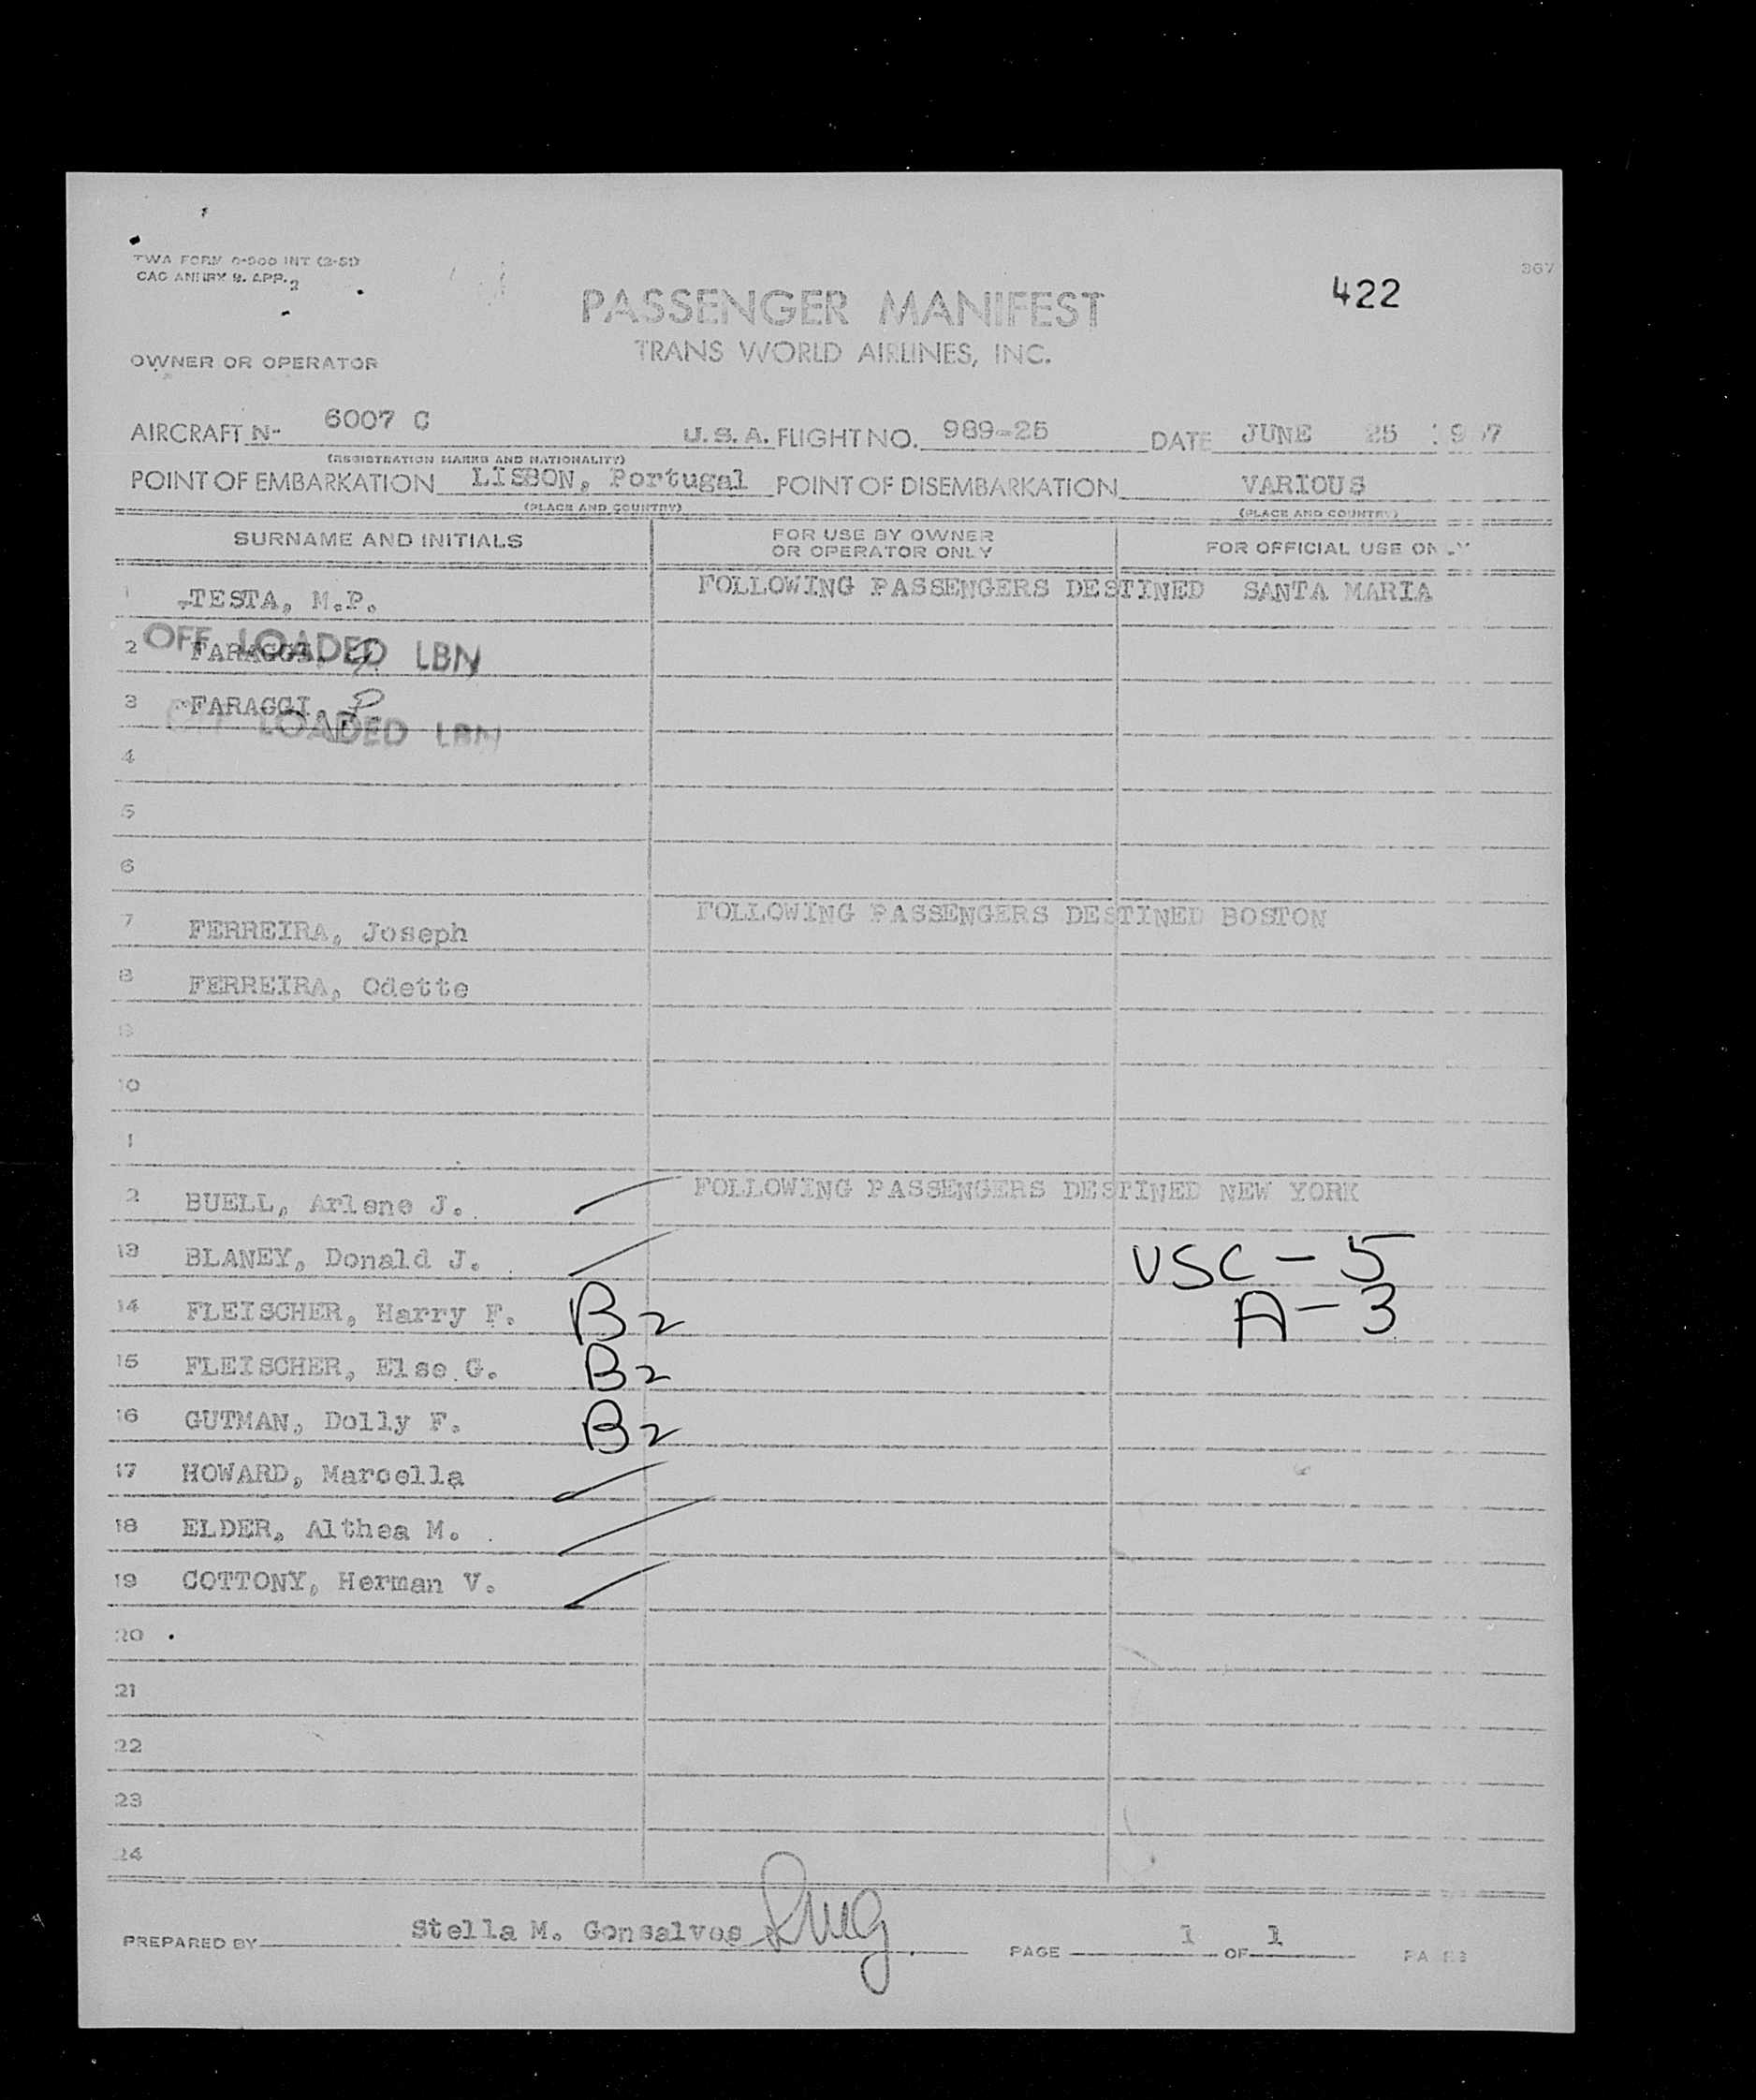 TWA FORM 0-900 INT (2-51)
367
422
PASSENGER MANIFEST
TRANS WORLD AIRLINES, INC.
OWNER OR OPERATOR
AIRCRAFT N- 6007 C U.S.A. FLIGHT NO. 989-25 DATE JUNE 25
(REGISTRATION MARKS AND NATIONALITY)
POINT OF EMBARKATION LISBON, Portugal POINT OF DISEMBARKATION VARIOUS
(PLACE AND COUNTRY) (PLACE AND COUNTRY)
SURNAME AND INITIALS FOR USE BY OWNER OR OPERATOR ONLY FOR OFFICIAL USE ONLY
FOLLOWING PASSENGERS DESTINED SANTA MARIA
1 TESTA, M.P.
2 OFF LOADED LBN
3 FARAGGI,
OFF LOADED LBN
4
5
6
FOLLOWING PASSENGERS DESTINED BOSTON
7 FERREIRA, Joseph
8 FERREIRA, Odette
9
10
1
FOLLOWING PASSENGERS DESTINED NEW YORK
2 BUELL, Arlene J.
13 BLANEY, Donald J. USC - 5
14 FLEISCHER, Harry F. B2 A - 3
15 FLEISCHER, Else G. B2
16 GUTMAN, Dolly F. B2
17 HOWARD, Marcella
18 ELDER, Althea M.
19 COTTONY, Herman V.
20
21
22
23
24
PREPARED BY Stella M. Gonsalves PAGE 1 OF 1